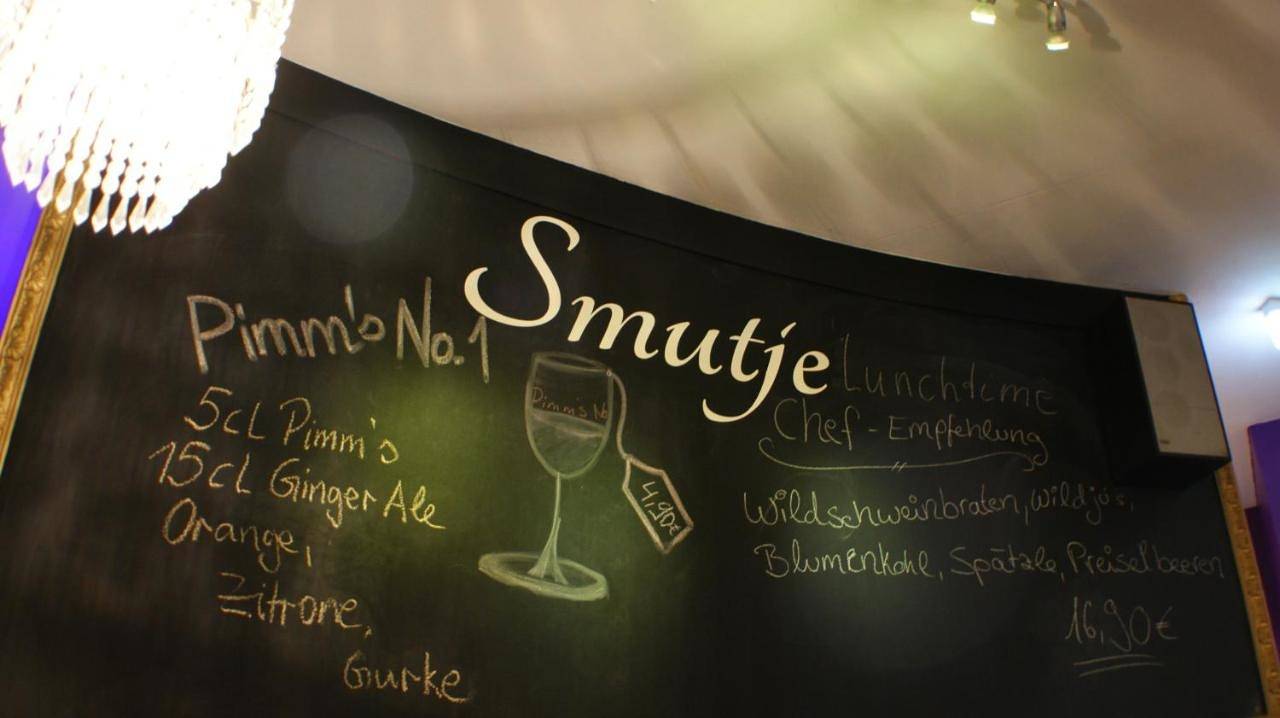 Smutje
Pimm's No.1
5cl Pimm's
15cl Ginger Ale
Orange,
Zitrone,
Gurke
Pimm's No
4,90€
Chef-Empfehlung
Wildschweinbraten, Wildjus,
Blumenkohl, Spätzle, Preiselbeeren
16,90€